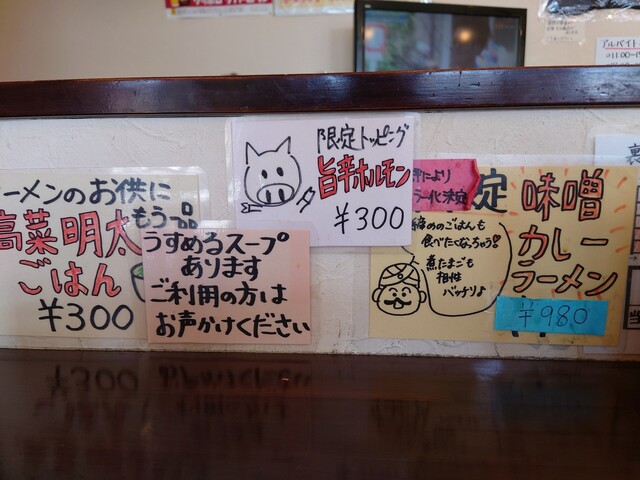 アルバイト
ラーメンのお供に
もう一品
高菜明太
ごはん
¥300
うすめるスープ
あります
ご利用の方は
お声かけください
限定トッピング
旨辛ホルモン
¥300
により
ラー化決定
定
味噌
カレー
ラーメン
¥980
〆のごはんも
食べたくなっちゃう!!
煮たまごも
相性
バッチリ♪